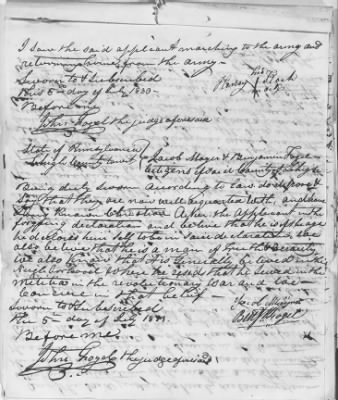 I saw the said applicant marching to the army and
returning home from the army —
Sworn to & Subscribed
this 5th day of July 1833 — Henry his mark
Before me
John Fogel the judge aforesaid
State of Pennsylvania
Lehigh County Jacob Moyer & Benjamin Fogel
citizens of said County of Lehigh
Being duly sworn according to law do depose &
say that they are now well acquainted with, and have
Christian the applicant in the
foregoing declaration and believe that he is of the age
he declares himself to be in said declaration, they
also believe that he is a man of truth & veracity
we also know that it is generally believed in the
Neighborhood where he resides that he served in the
Militia in the revolutionary War and we
Concur in that belief
Sworn to & Subscribed Jacob
this 5th day of July 1833 Fogel
Before me
John Fogel the judge aforesaid